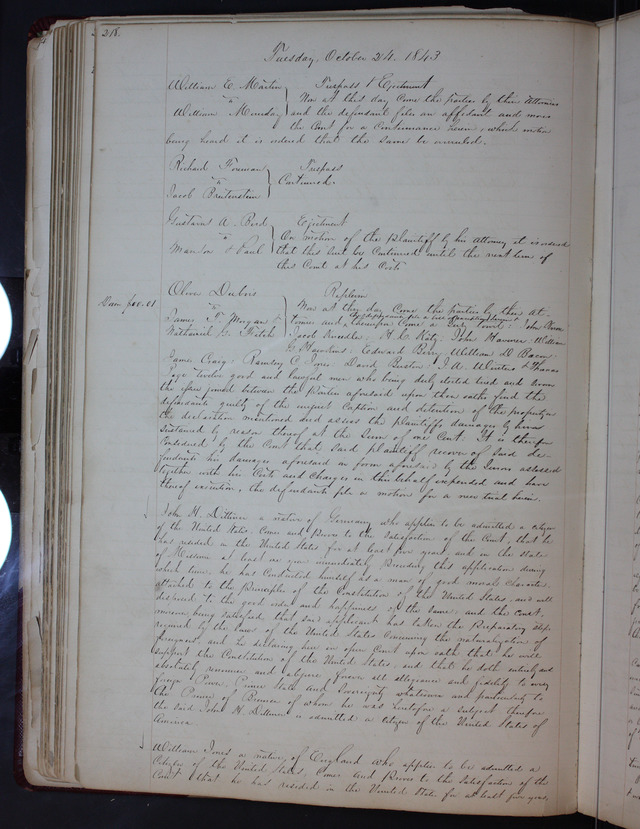 218.
Tuesday, October 24. 1843
William C. Martin Trespass & Ejectment
vs Now at this day Come the parties by their Attornies
William Mundy and the defendant files an affidavit and moves
the Court for a Continuance herein, which motion
being heard it is ordered that the same be overruled.
Richard Freeman Trespass
vs Continued.
Jacob
Gustavus A. Bird Ejectment
vs On motion of the Plaintiff by his Attorney it is ordered
& Paul that this suit be Continued until the next term of
this Court at his Costs
Oliver Dubois Replevin
Dam $00.01 vs Now at this day Come the parties by their at-
James T. Morgan & tornies and
Nathaniel G. Fitch thereupon Come a Jury to wit: John
Jacob H. C. Katz. John William
G. Hawkins. Edward Berry, William D. Bacon
James Craig. C. David J. A. & Thomas
Page twelve good and lawful men who being duly elected tried and sworn
the issue joined between the parties aforesaid upon their oaths find the
defendants guilty of the unjust Caption and detention of the property in
the declaration mentioned and assess the plaintiffs damages by him
sustained by reason thereof at the Sum of one Cent. It is therefore
Considered by the Court that said plaintiff recover of said de-
fendants his damages aforesaid in form aforesaid by the Jurors assessed
together with his Costs and Charges in this behalf expended and have
thereof execution, the defendants file a motion for a new trial herein.
John H. Dittmer a native of Germany who applies to be admitted a citizen
of the United States, Comes and Proves to the Satisfaction of the Court, that he
has resided in the United States for at least five years, and in the State
of Missouri at least one year immediately Preceding this application during
which time he has Conducted himself as a man of good moral Character
attached to the Principles of the Constitution of the United States, and well
disposed to the good order and happiness of the same: and the Court,
moreover being satisfied, that said applicant has taken the Preparatory steps
required by the laws of the United States Concerning the naturalization of
foreigners, and he declaring here in open Court upon oath that he will
support the Constitution of the United States, and that he doth entirely and
absolutely renounce and abjure forever all allegiance and fidelity to every
foreign Power, Prince State and Sovereignty whatsoever and particularly to
the Prince of Bremen of whom he was heretofore a subject therefore
the said John H. Dittmer is admitted a citizen of the United States of
America
William Jones a native of England who applies to be admitted a
Citizen of the United States, Comes and Proves to the Satisfaction of the
Court that he has resided in the United States for at least five years,